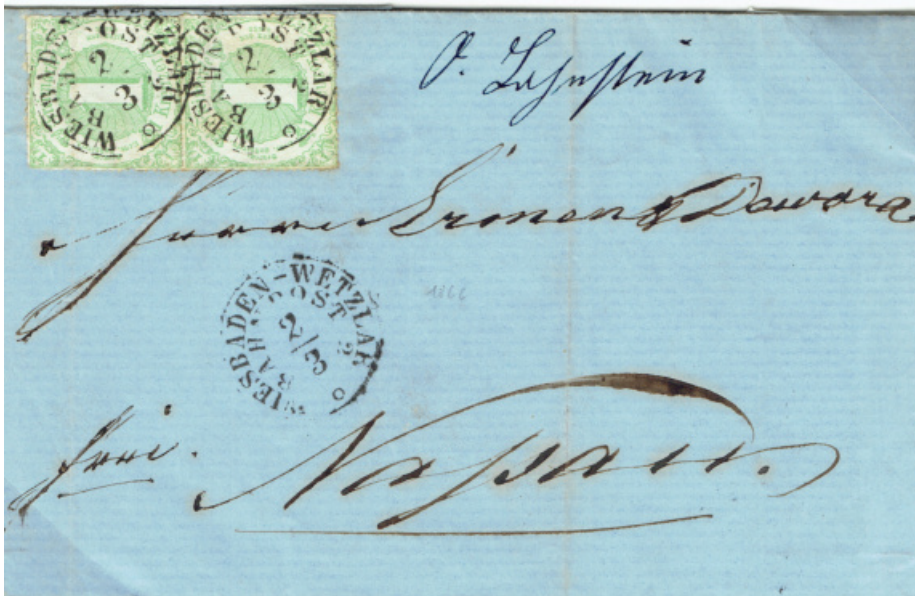 WIESBADEN-WETZLAR
BAHNPOST
2/3
1
WIESBADEN-WETZLAR
BAHNPOST
2/3
1
O. Lahnstein
Herren & 
WIESBADEN-WETZLAR
BAHNPOST
2/3
1866
frei.
Nassau.